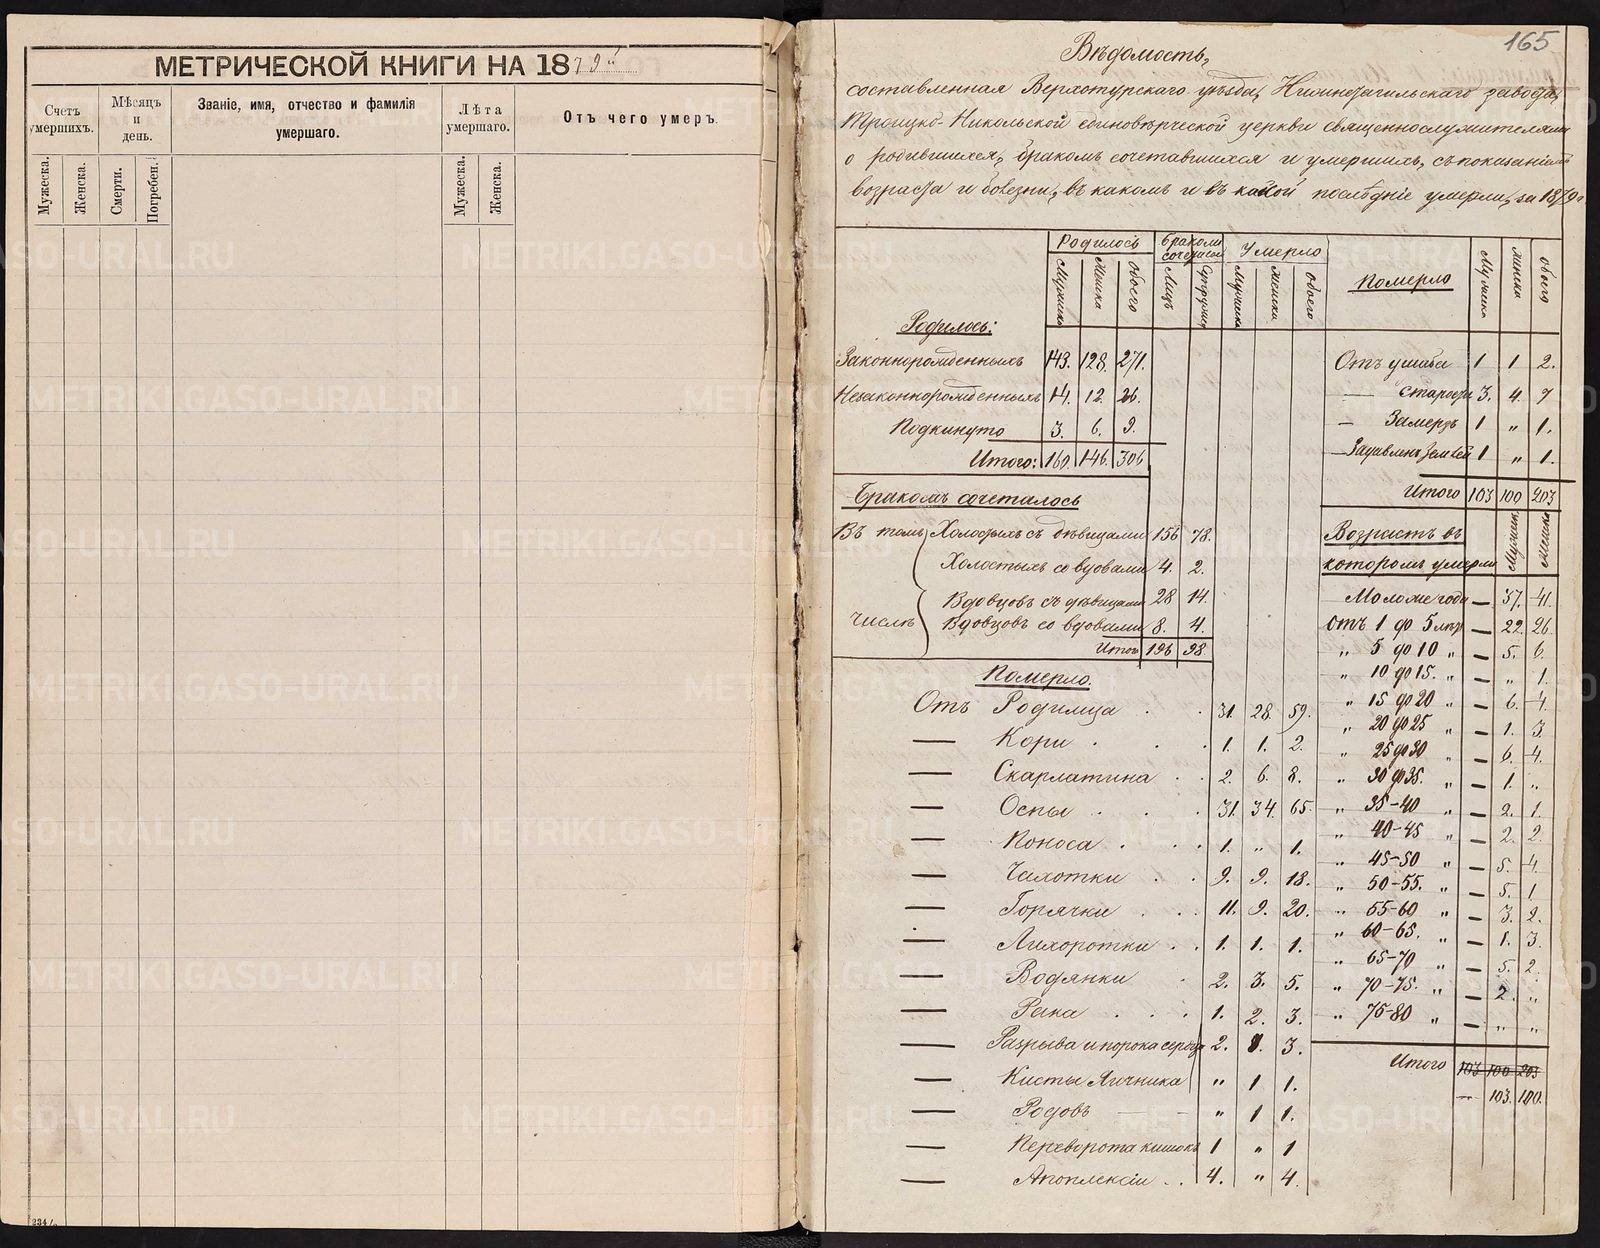 МЕТРИЧЕСКОЙ КНИГИ НА 1879й
Счетъ умершихъ.
Мѣсяцъ и день.
Званіе, имя, отчество и фамилія умершаго.
Лѣта умершаго.
Отъ чего умеръ.
Мужеска.
Женска.
Смерти.
Погребен.
Мужеска.
Женска.
234/
165
Вѣдомость,
составленная Верхотурскаго уѣзда, Нижнетагильскаго завода,
Троицко-Никольской единовѣрческой церкви священнослужителями
о родившихся, бракомъ сочетавшихся и умершихъ, съ показаніемъ
возраста и болезни, въ какомъ и въ какой послѣдніе умерли, за 1879 г.
Родилось
Бракомъ сочетал
Умерло
Померло
Мужеска
Женска
Обоего
Родилось:
Законнорожденныхъ 143. 128. 271.
Незаконнорожденныхъ 14. 12. 26.
Подкинуто 3. 6. 9.
Итого: 160. 146. 306
Бракомъ сочеталось
Въ томъ числѣ
Холостыхъ съ дѣвицами 156 78.
Холостыхъ со вдовами 4. 2.
Вдовцовъ съ дѣвицами 28 14.
Вдовцовъ со вдовами 8. 4.
Итого 196 98.
Померло.
Отъ Родимца 31. 28. 59.
— Кори 1. 1. 2.
— Скарлатина 2. 6. 8.
— Оспы 31. 34. 65.
— Поноса 1. „ 1.
— Чахотки 9. 9. 18.
— Горячки 11. 9. 20.
— Лихоротки 1. 1. 1.
— Водянки 2. 3. 5.
— Рака 1. 2. 3.
— Разрыва и порока сердца 2. 1. 3.
— Кисты Яичника „ 1 1.
— Родовъ „ 1 1.
— Переворота кишокъ 1 „ 1
— Апоплексіи 4. „ 4.
Отъ ушиба 1 1 2.
— старости 3. 4. 7
— Замерзъ 1 „ 1.
— Задавленъ землей 1 „ 1.
Итого 103 100 203
Возрастъ въ
которомъ умерли
Моложе года — 37. 41.
Отъ 1 до 5 лѣтъ — 22. 26
„ 5 до 10 „ — 5. 6.
„ 10 до 15. „ — „ 1.
„ 15 до 20 „ — 6. 4.
„ 20 до 25 „ — 1. 3
„ 25 до 30 „ — 6. 4.
„ 30 до 35. „ — 1. „
„ 35-40 „ — 2. 1.
„ 40-45 „ — 2. 2.
„ 45-50 „ — 5. 4.
„ 50-55. „ — 5. 1
„ 55-60 „ — 3. 2.
„ 60-65. „ — 1. 3.
„ 65-70 „ — 5. 2.
„ 70-75. „ — 2. „
„ 75-80 „ — „ „
Итого 103 100 203
— 103. 100.
METRIKI.GASO-URAL.RU